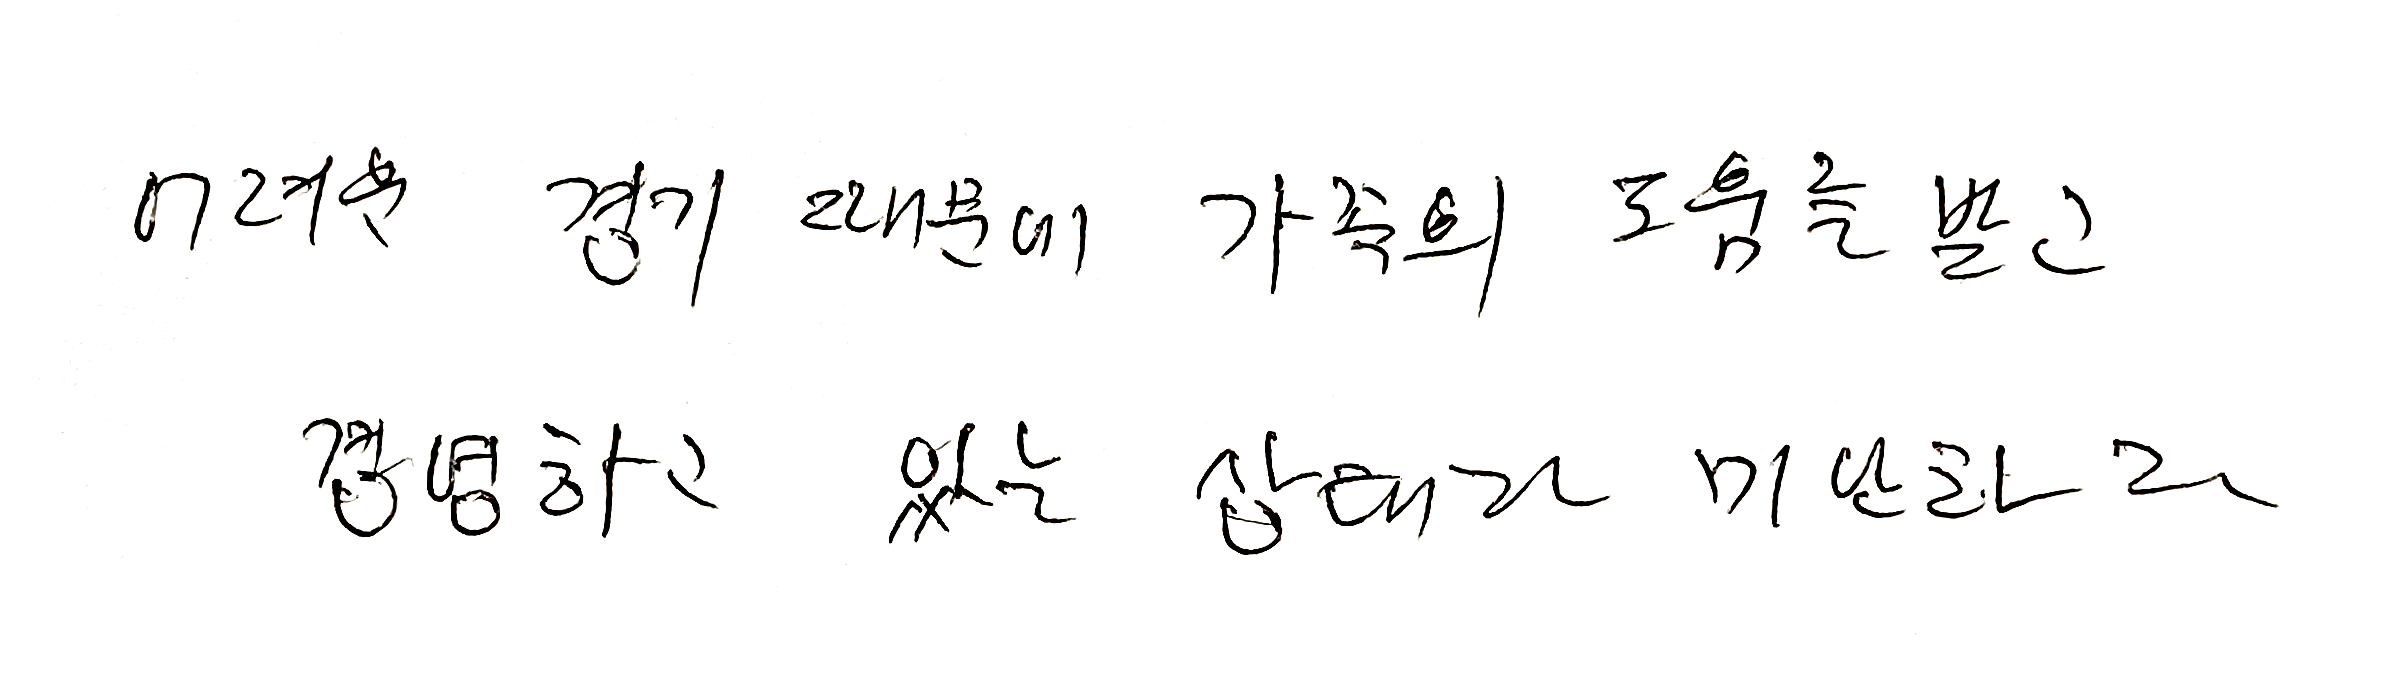 어려운 경기 때문에 가족의 도움을 받고
경영하고 있는 상태라 미난하고